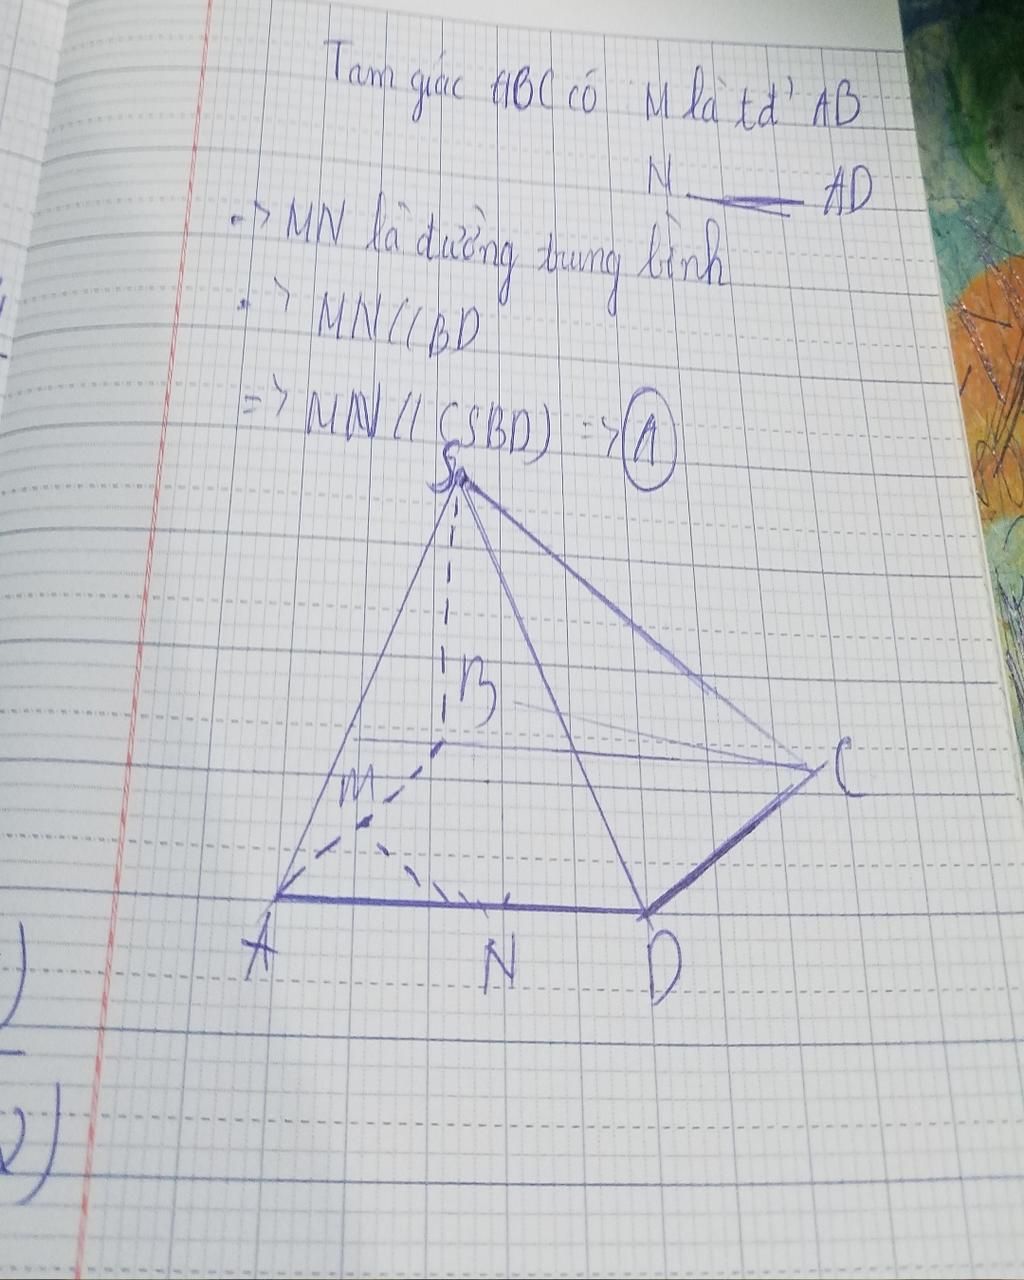 Tam giác ABC có M là tđ' AB
N —— AD
=> MN là đường trung bình
=> MN // BD
=> MN // (SBD) => A
S
B
M
C
A
N
D
)
2)